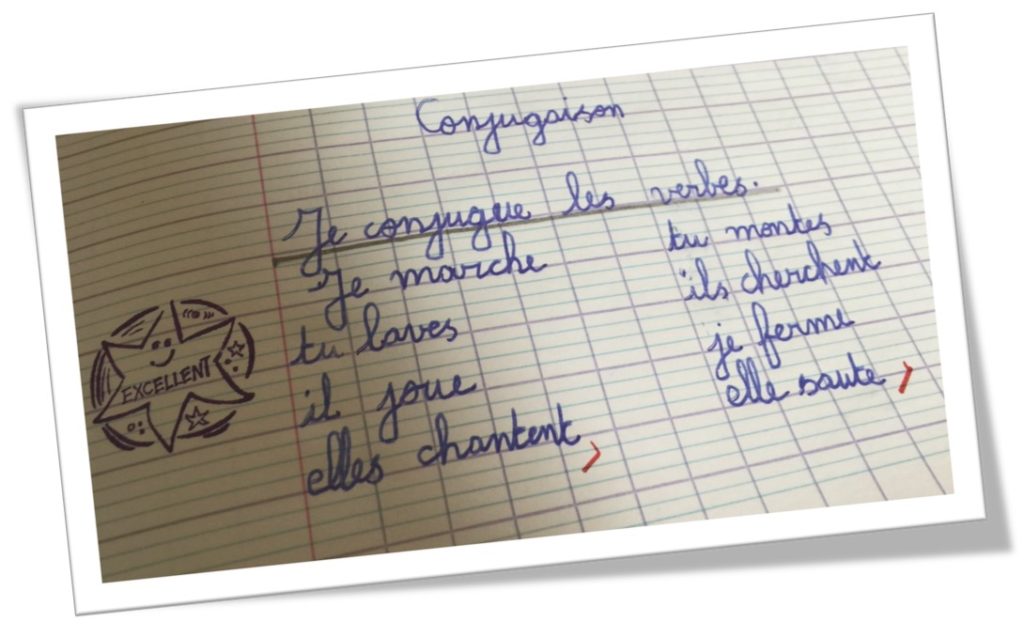 Conjugaison
Je conjugue les verbes.
Je marche
tu laves
il joue
elles chantent
tu montes
ils cherchent
je ferme
elle saute
EXCELLENT